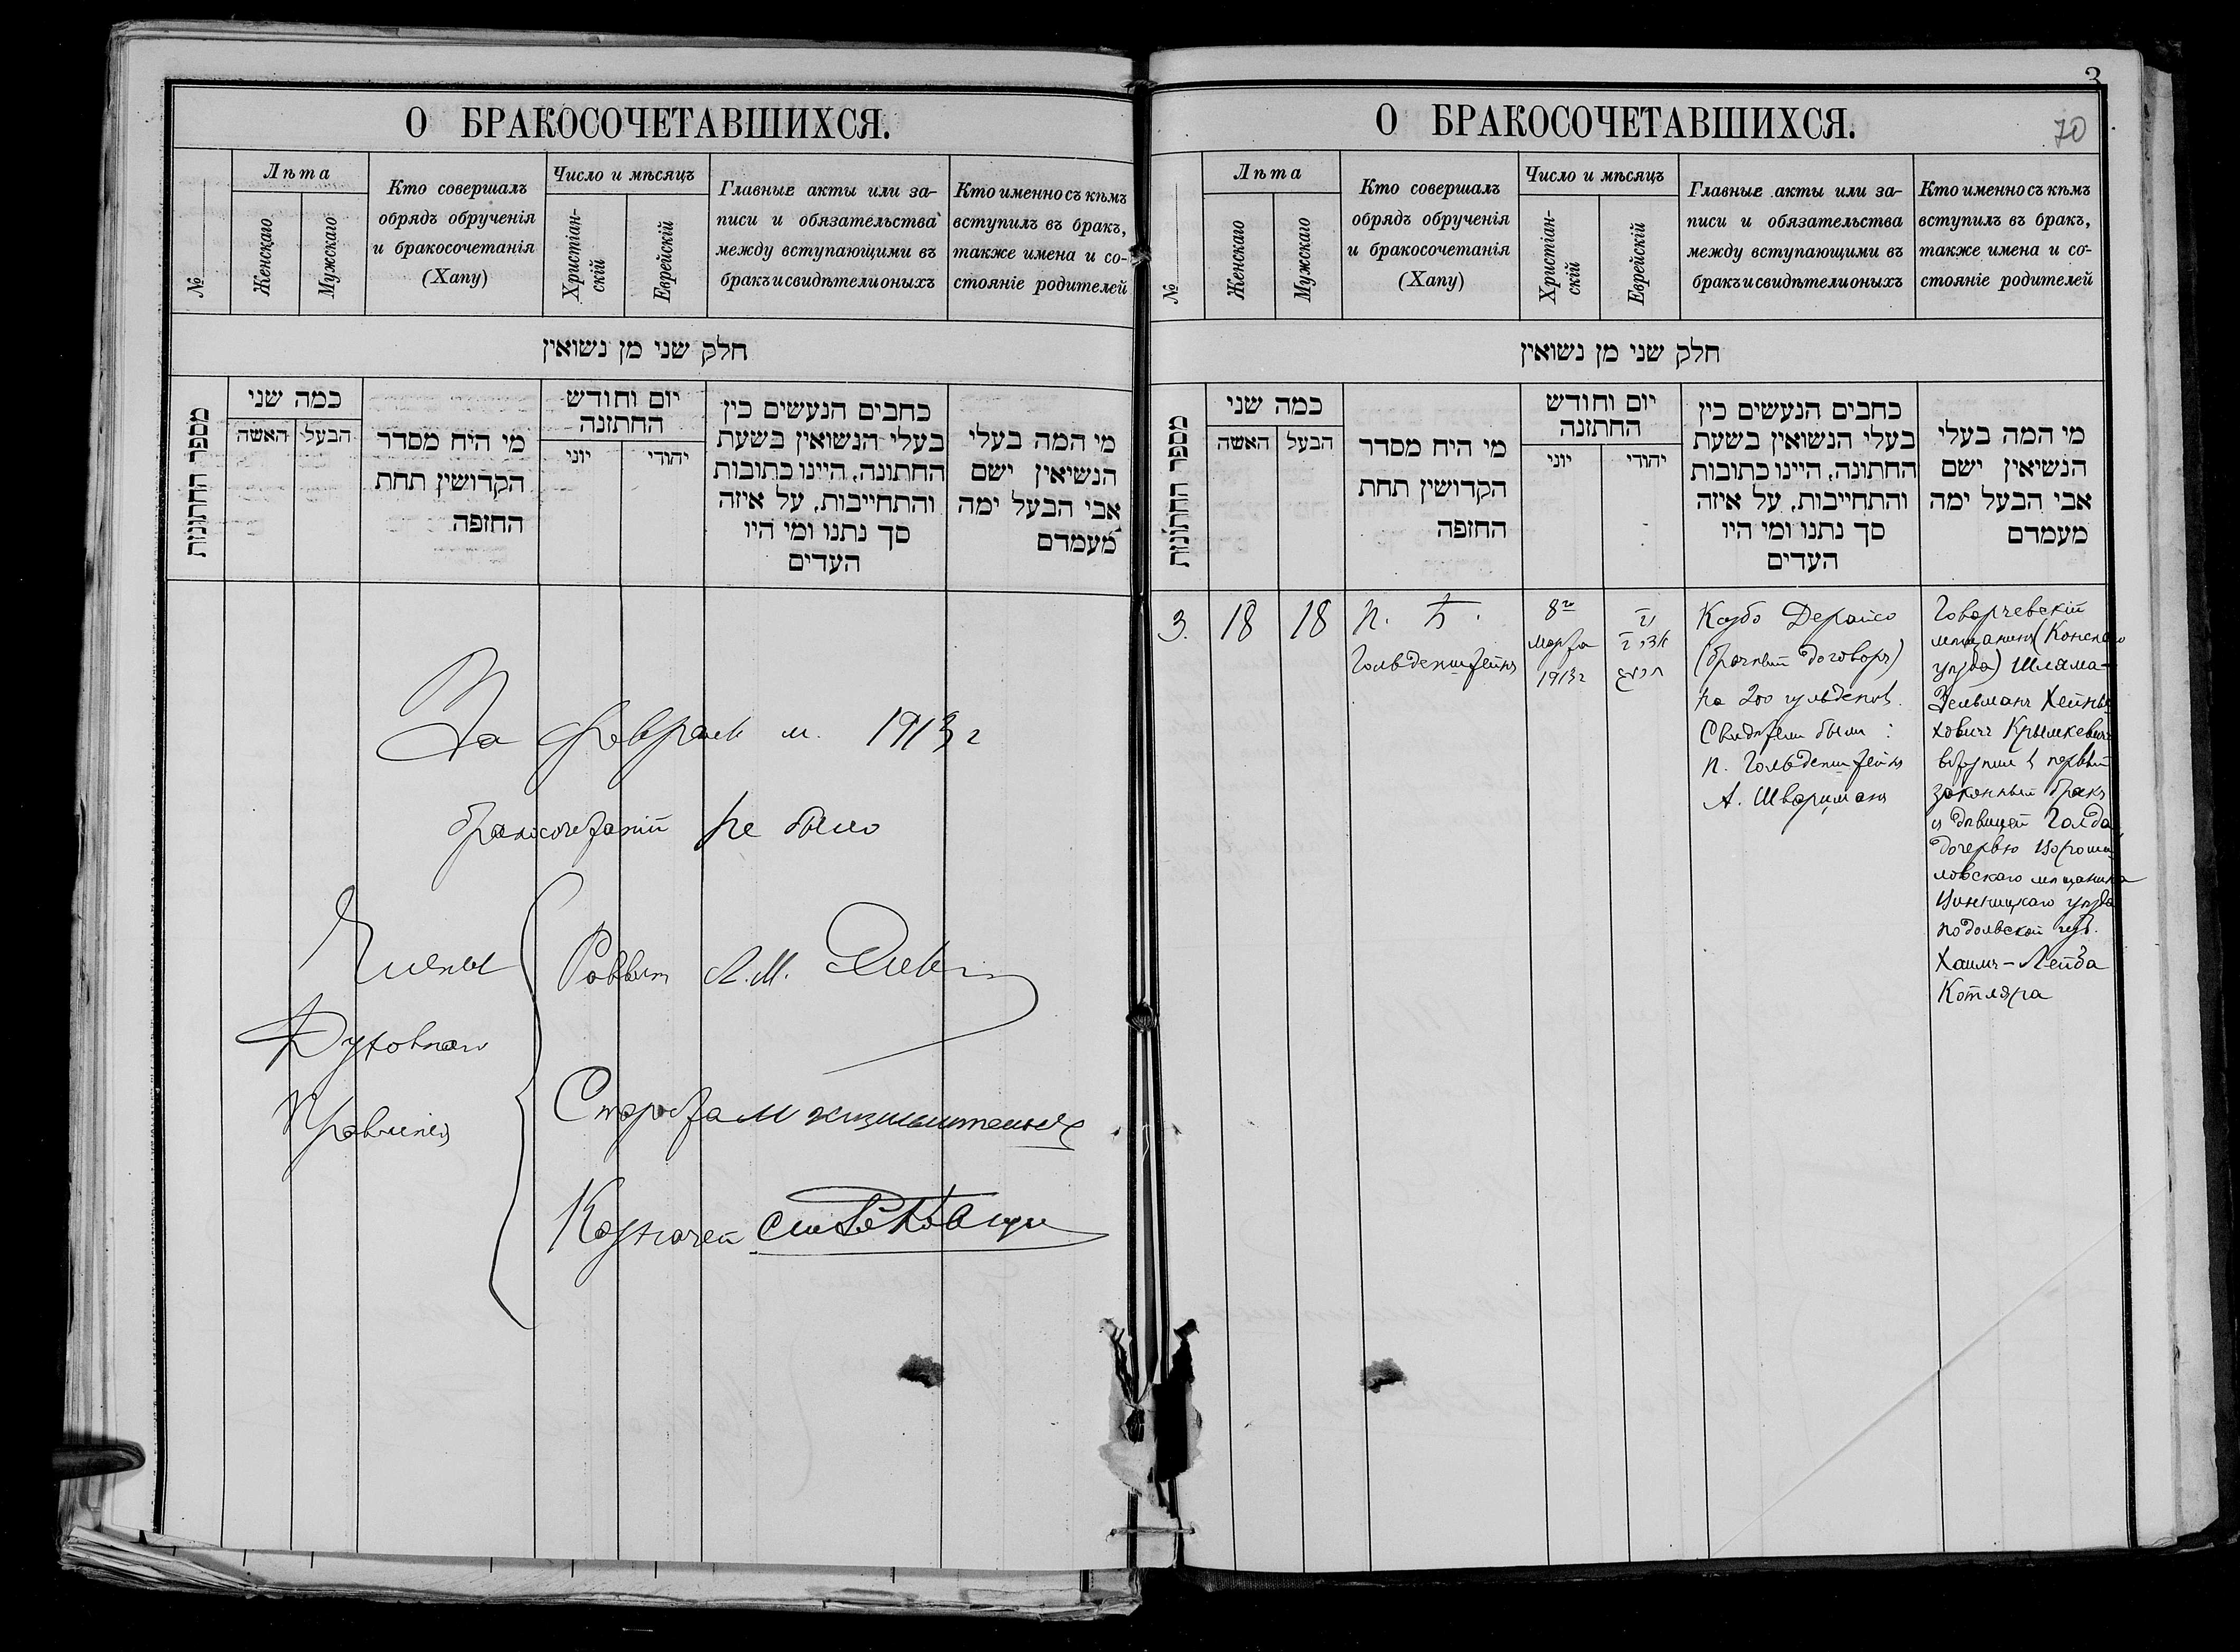 О БРАКОСОЧЕТАВШИХСЯ.
№
Лѣта
Женскаго
Мужскаго
Кто совершалъ
обрядъ обрученія
и бракосочетанія
(Хапу)
Число и мѣсяцъ
Христіан-
скій
Еврейскій
Главные акты или за-
писи и обязательства
между вступающими въ
бракъ и свидѣтели оныхъ
Кто именно съ кѣмъ
вступилъ въ бракъ,
также имена и со-
стояніе родителей
חלק שני מן נשואין
מספר החתונות
כמה שני
האשה
הבעל
מי היח מסדר
הקדושין תחת
החופה
יום וחודש
החתונה
יוני
יהודי
כחבים הנעשים כין
בעלי הנשואין בשעת
החתונה, היינו כתובות
והתחייבות, על איזה
סך נתנו ומי היו
העדים
מי המה בעלי
הנשיאין ישם
אבי הבעל ימה
מעמדם
За февраль м. 1913 г
бракосочетаній не было
Члены
Духовнаго
Правленія
Раввин
Староста
Казначей
3
О БРАКОСОЧЕТАВШИХСЯ.
70
№
Лѣта
Женскаго
Мужскаго
Кто совершалъ
обрядъ обрученія
и бракосочетанія
(Хапу)
Число и мѣсяцъ
Христіан-
скій
Еврейскій
Главные акты или за-
писи и обязательства
между вступающими въ
бракъ и свидѣтели оныхъ
Кто именно съ кѣмъ
вступилъ въ бракъ,
также имена и со-
стояніе родителей
חלק שני מן נשואין
מספר החתונות
כמה שני
האשה
הבעל
מי היח מסדר
הקדושין תחת
החופה
יום וחודש
החתונה
יוני
יהודי
כחבים הנעשים כין
בעלי הנשואין בשעת
החתונה, היינו כתובות
והתחייבות, על איזה
סך נתנו ומי היו
העדים
מי המה בעלי
הנשיאין ישם
אבי הבעל ימה
מעמדם
3.
18
18
Гольденштейнъ
8го
Марта
1913 г
(брачный договоръ)
на 200 гульденов.
Свидѣтели были:
п. Гольденштейнъ
А. Шварцманъ
мѣщанинъ
уѣзда) Шлема-
Зельманъ
вступил в первый
законный бракъ
съ дѣвицей Голда,
дочерью
мѣщанина
Винницкаго уѣзда
Подольской губ.
Хаимъ-Лейба
Котляра